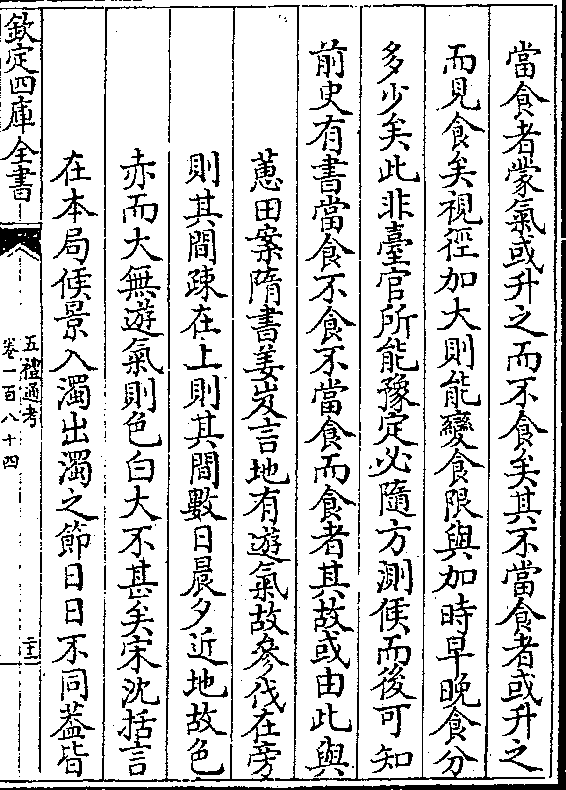 當食者蒙氣或升之而不食矣其不當食者或升之
而見食矣視徑加大則能變食限與加時早晚食分
多少矣此非臺官所能豫定必隨方測候而後可知
前史有書當食不食不當食而食者其故或由此與
蕙田案隋書姜岌言地有遊氣故參伐在旁
則其間疎在上則其間數日晨夕近地故色
赤而大無遊氣則色白大不甚矣宋沈括言
在本局候景入濁出濁之節日日不同葢皆
欽定四庫全書
五禮通考
卷一百八十四